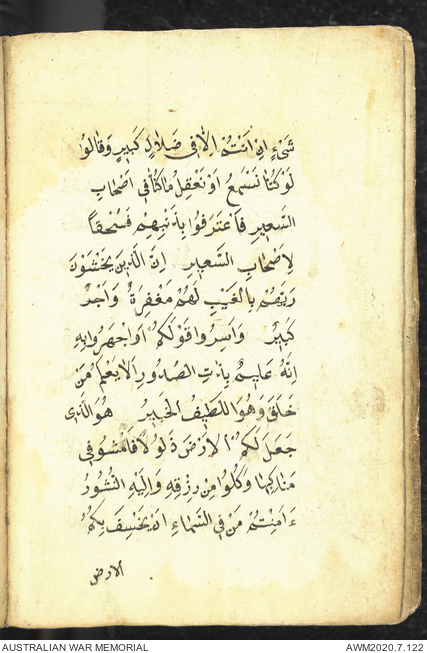 شَيْءٍ اِنْ اَنْتُمْ اِلَّا فِى ضَلَالٍ كَبِيرٍ وَقَالُوا
لَوْ كُنَّا نَسْمَعُ اَوْ نَعْقِلُ مَا كُنَّا فِى اَصْحَابِ
السَّعِيرِ فَاعْتَرَفُوا بِذَنْبِهِمْ فَسُحْقًا
لِاَصْحَابِ السَّعِيرِ اِنَّ الَّذِينَ يَخْشَوْنَ
رَبَّهُمْ بِالْغَيْبِ لَهُمْ مَغْفِرَةٌ وَاَجْرٌ
كَبِيرٌ وَاَسِرُّوا قَوْلَكُمْ اَوِاجْهَرُوا بِهِ
اِنَّهُ عَلِيمٌ بِذَاتِ الصُّدُورِ اَلَا يَعْلَمُ مَنْ
خَلَقَ وَهُوَ اللَّطِيفُ الْخَبِيرُ هُوَ الَّذِى
جَعَلَ لَكُمُ الْاَرْضَ ذَلُولًا فَامْشُوا فِى
مَنَاكِبِهَا وَكُلُوا مِنْ رِزْقِهِ وَاِلَيْهِ النُّشُورُ
ءَاَمِنْتُمْ مَنْ فِى السَّمَاءِ اَنْ يَخْسِفَ بِكُمُ
الارض
AUSTRALIAN WAR MEMORIAL AWM2020.7.122